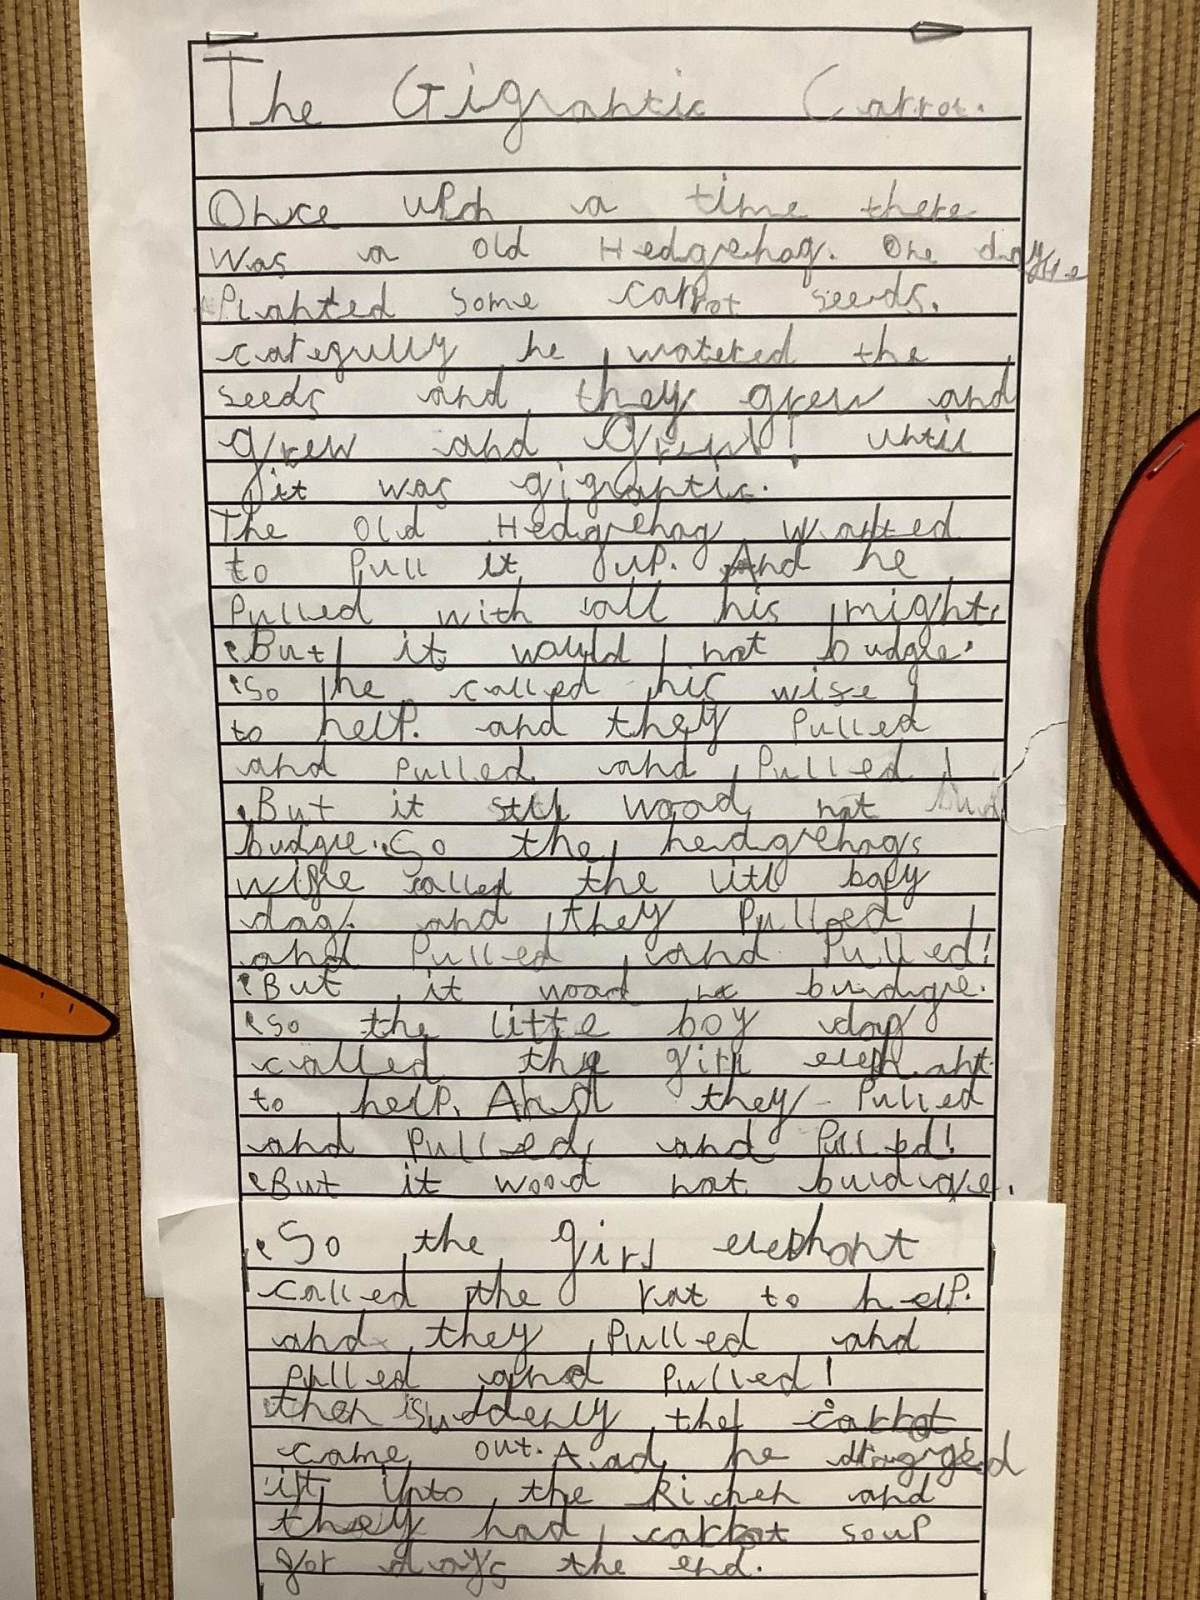 The Gigantic Carrot.
Once upon a time there
was a old Hedgehog. One day he
Planted some carrot seeds.
carefully he watered the
seeds and they grew and
grew and Grew! until
it was gigantic.
The old Hedgehog wanted
to Pull it up. And he
Pulled with all his might.
But it would not budge.
So he called his wise
to help. and they Pulled
and Pulled and Pulled!
But it still wood not
budge. So the hedgehogs
wife called the litl
dog. and they Pulled
and Pulled and Pulled!
But it wood budige.
So the little boy dog
called the girl elephant
to help. And they Pulled
and Pulled and Pulled!
But it wood not budige.
So the girl elephant
called the rat to help.
and they Pulled and
pulled and Pulled!
then suddenly the carrot
came out. And he dragged
it into the kichen and
they had carrot soup
for days the end.